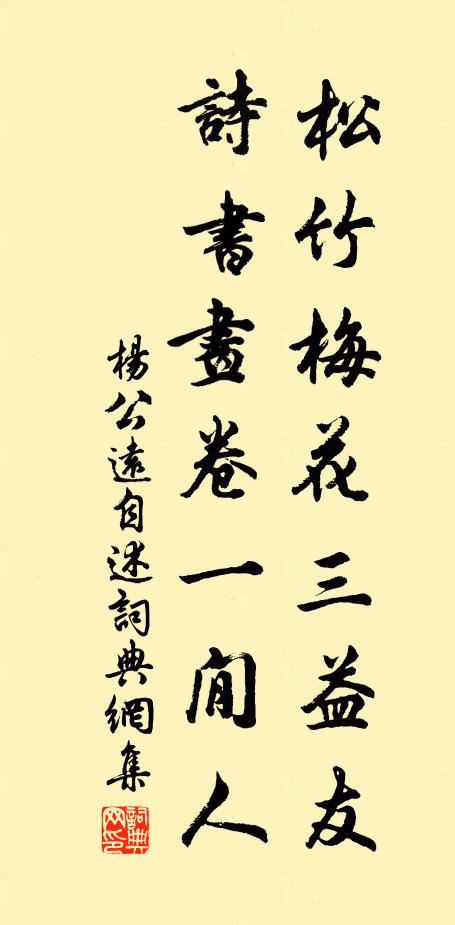 松竹梅花三益友
詩書畫卷一閒人
楊公遠自述詞典網集
詞典网印